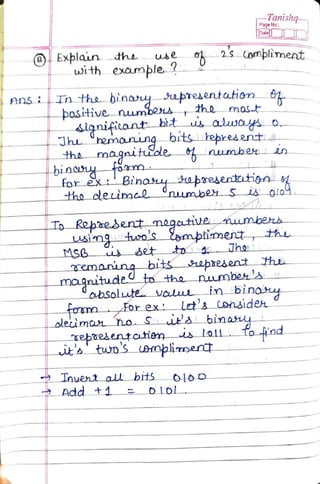 Tanishq
Page No.:
Date
(a) Explain the use of 2's compliment
with example?
Ans: In the binary representation of
positive numbers, the most
significant bit is always 0.
The remaning bits represent
the magnitude of number in
binary form.
for ex: Binary representation of
the decimal number 5 is 0101.
To Represent negative numbers
using two's compliment, the
MSB is set to 1. The
remaning bits represent the
magnitude to the number's
absolute value in binary
form. For ex: let's consider
decimar no. 5 it's binary
representation is 1011. To find
it's two's compliment
→ Invert all bits 0100
→ Add +1 = 0101.